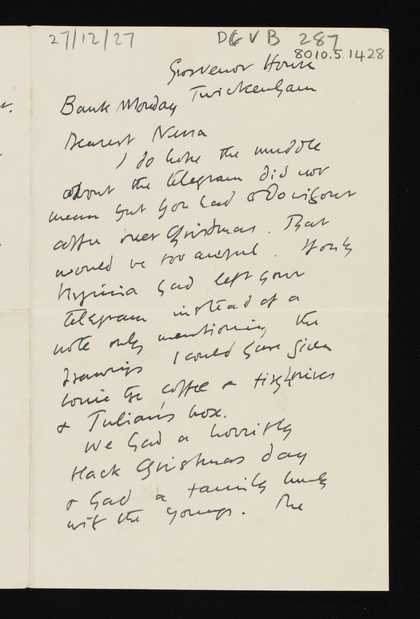 27/12/27
DG VB 287
8010.5.1428
Grosvenor House
Twickenham
Bank Monday
Dearest Nessa
I do hope the muddle
about the telegram did not
mean that you had to do without
coffee over Christmas. That
would be too awful. If only
Virginia had left your
telegram instead of a
note only mentioning the
drawings I could have given
Louie the coffee & fireworks
& Julian's box.
We had a horribly
black Christmas day
& had a family lunch
with the youngs. The